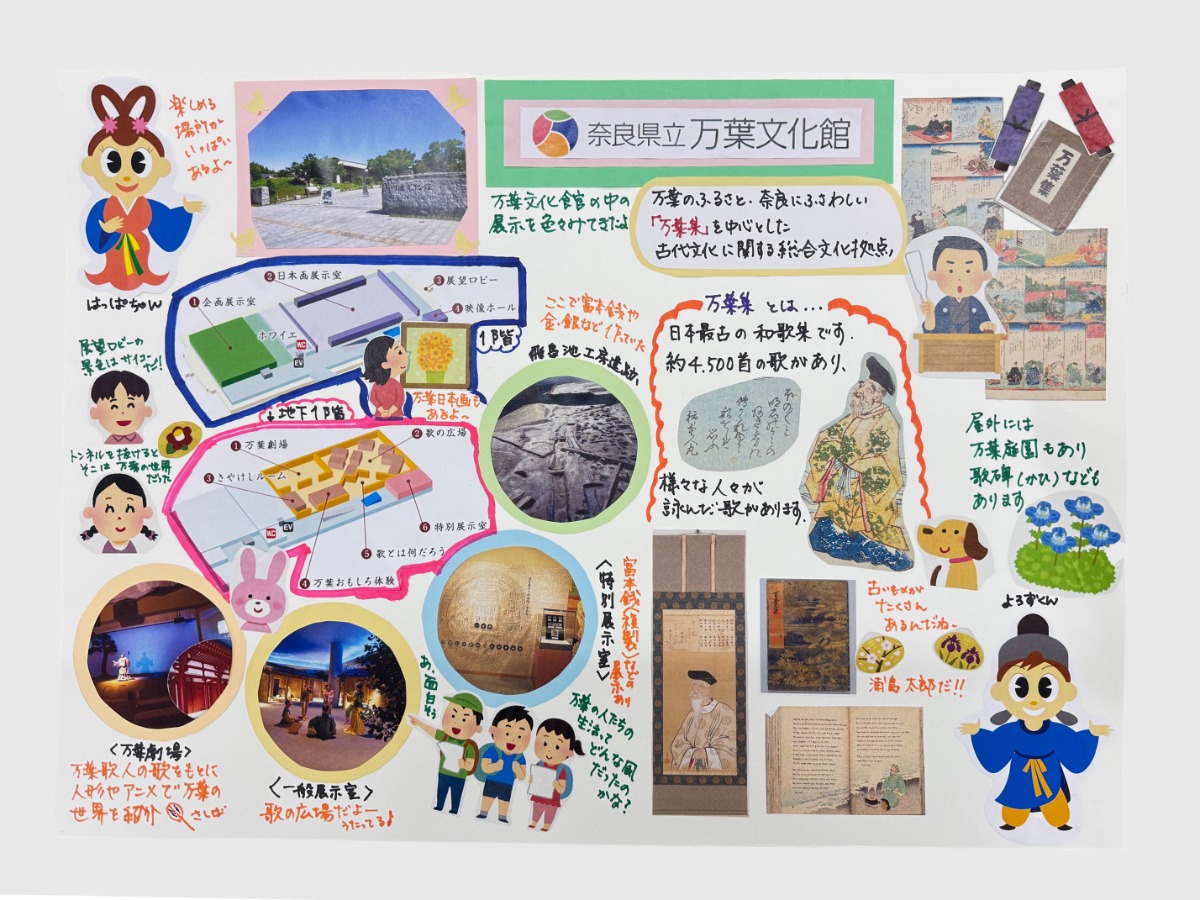 楽しめる
場所が
いっぱい
あるよ〜
はっぱちゃん
奈良県立 万葉文化館
万葉文化館の中の
展示を色々みてきたよ
万葉のふるさと・奈良にふさわしい
「万葉集」を中心とした
古代文化に関する総合文化拠点
万葉集
1 企画展示室
2 日本画展示室
3 展望ロビー
4 映像ホール
ホワイエ
WC
EV
1階
万葉日本画も
あるよ〜
展望ロビーの
景色はサイコーだ!
↓地下1階
1 万葉劇場
2 歌の広場
3 さやけしルーム
WC
EV
6 特別展示室
5 歌とは何だろう
4 万葉おもしろ体験
トンネルを抜けると
そこは 万葉の世界
だった
ここで富本銭や
金・銀など作っていた
飛鳥池工房遺跡
万葉集 とは...
日本最古の和歌集です.
約4,500首の歌があり、
様々な人々が
詠んだ歌があります.
屋外には
万葉庭園もあり
歌碑(かひ)なども
あります
よろずくん
<万葉劇場>
万葉歌人の歌をもとに
人形やアニメで万葉の
世界を紹介
さしば
<一般展示室>
歌の広場だよー
うたってる♪
<特別展示室>
富本銭(複製)などの
展示あり
お、面白そう
万葉の人たちの
生活って
どんな風
だったの
かな?
古いものが
たくさん
あるんだねー
浦島太郎だ!!